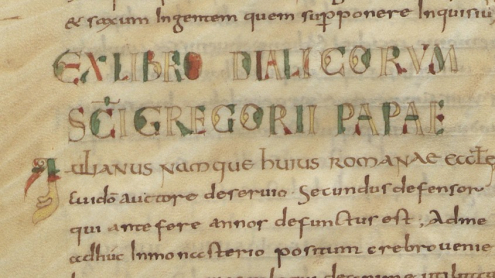 & saxum Ingentem quem supponere Inquisiu
EX LIBRO DIALICORVM
SCI GREGORII PAPAE
IULIANUS NAMQUE huius ROMANAE ECCLE
cui do auctore deseruio Secundus defensor
qui ante fere annos defunctus est, Adme
adhuc Inmonasterio positum crebro uenie